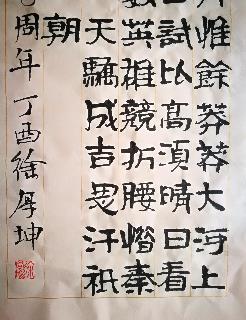 惟餘莽莽大河上
試比高須晴日看
英雄競折腰惜秦
天驕成吉思汗祇
朝
周年丁酉徐厚坤